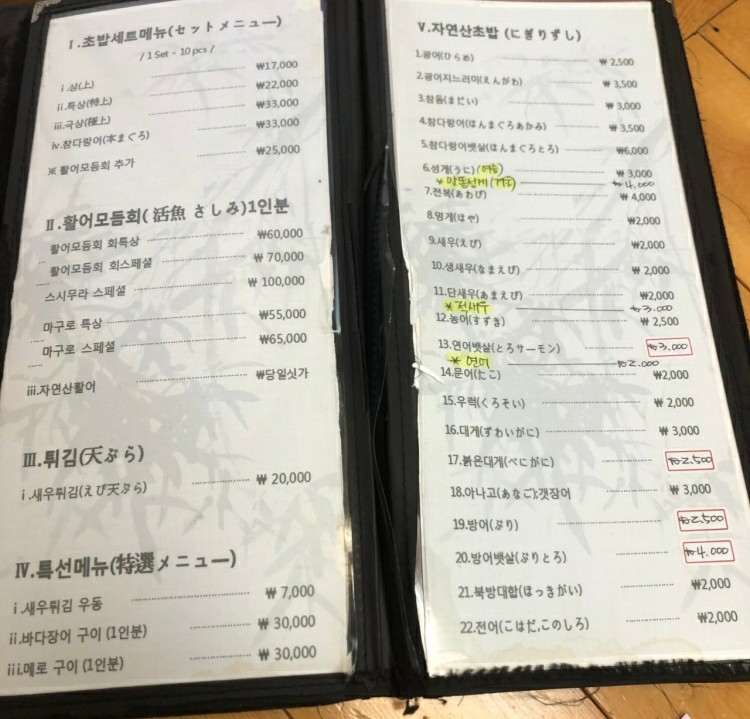 I.초밥세트메뉴(セットメニュー)
/ 1 Set - 10 pcs /
₩17,000
i .상(上) ₩22,000
ii.특상(特上) ₩33,000
iii.극상(極上) ₩33,000
iv.참다랑어(本まぐろ)
※ 활어모듬회 추가 ₩25,000
II.활어모듬회( 活魚 さしみ)1인분
활어모듬회 회특상 ₩60,000
활어모듬회 회스페셜 ₩ 70,000
스시무라 스페셜 ₩ 100,000
마구로 특상 ₩55,000
마구로 스페셜 ₩65,000
iii.자연산활어 ₩당일싯가
III.튀김(天ぷら)
i .새우튀김(えび天ぷら) ₩ 20,000
IV.특선메뉴(特選メニュー)
i .새우튀김 우동 ₩ 7,000
ii.바다장어 구이 (1인분) ₩ 30,000
iii.메로 구이 (1인분) ₩ 30,000
V.자연산초밥 (にぎりずし)
1.광어(ひらめ) ₩ 2,500
2.광어지느러미(えんがわ) ₩ 3,500
3.참돔(まだい) ₩ 3,000
4.참다랑어(ほんまぐろあかみ) ₩ 3,500
5.참다랑어뱃살(ほんまぐろとろ) ₩6,000
6.성게(うに) ₩ 3,000
* 말똥성게 ₩4.000
7.전복(あわび) ₩ 4,000
8.멍게(ほや) ₩2,000
9.새우(えび) ₩2,000
10.생새우(なまえび) ₩ 2,000
11.단새우(あまえび) ₩2,000
* 진새우 ₩3.000
12.농어(すずき) ₩ 2,500
13.연어뱃살(とろサーモン) ₩3.000
* 연어 ₩2.000
14.문어(たこ) ₩2,000
15.우럭(くろそい) ₩ 2,000
16.대게(ずわいがに) ₩ 3,000
17.붉은대게(べにがに) ₩2.500
18.아나고(あなご);갯장어 ₩ 3,000
19.방어(ぶり) ₩2.500
20.방어뱃살(ぶりとろ) ₩4.000
21.북방대합(ほっきがい) ₩2,000
22.전어(こはだ,このしろ) ₩2,000